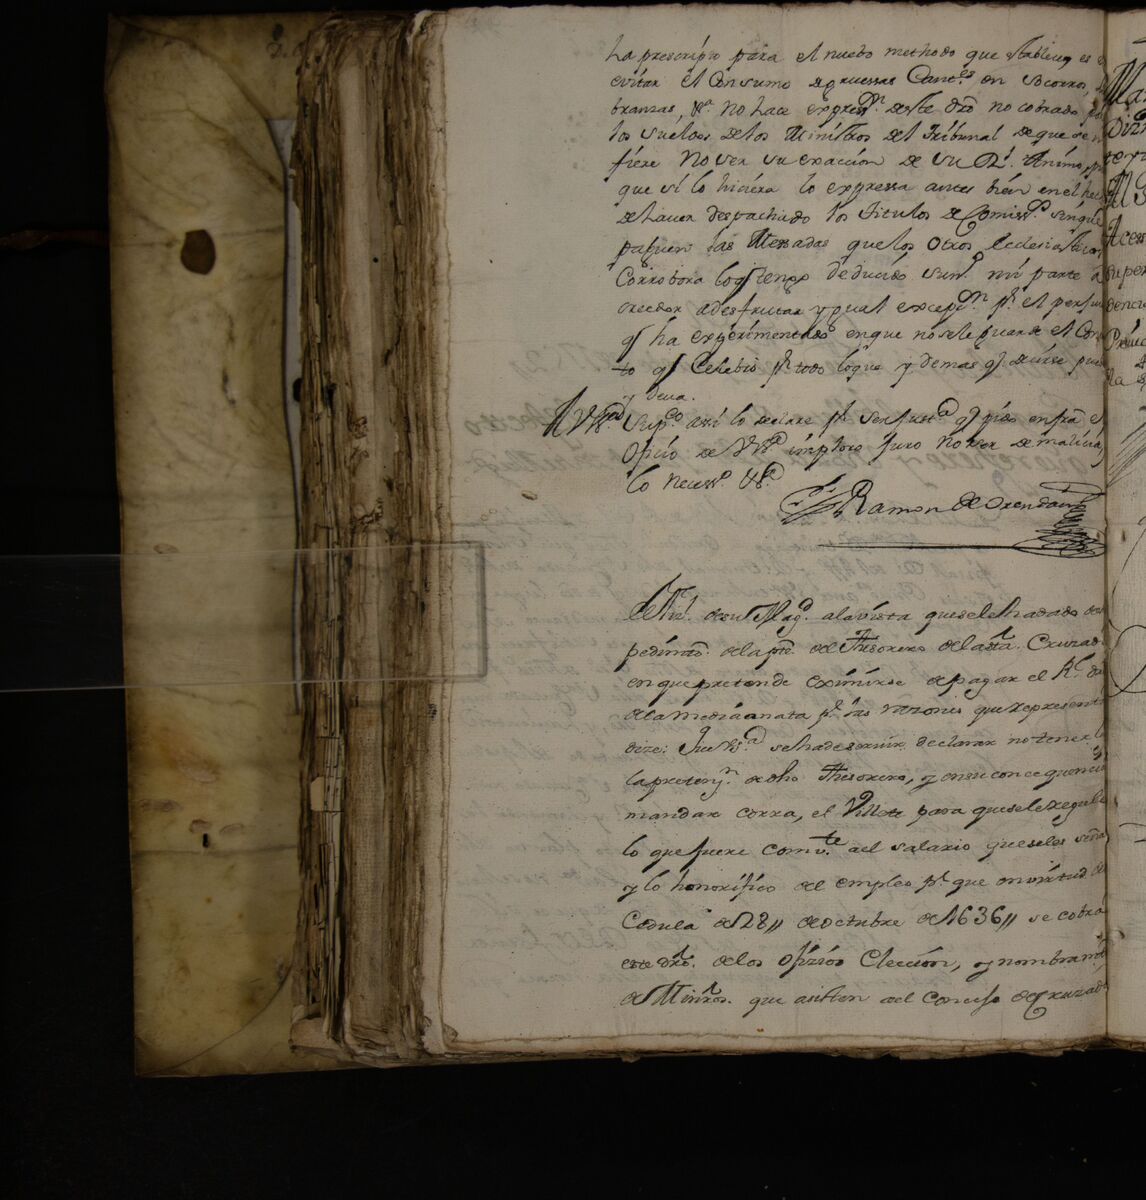 ha prescripto para el nuebo methodo que establece es
evitar el Consumo de gruessas Cant.es en socorro,
branzas, &.a No hace expres.n de este dro no cobrado, por
los sueldos de los Ministros del Tribunal de que se
fiere No ser su exaccion de su R.l Animo,
que si lo hiciera lo expressa antes bien en el
de haver despachado los titulos de Comiss.o sin que
paguen las Messadas que los otros Eclesiasticos
Corrobora lo q tengo deducido mi parte
creedor a desfrutar ygual excepc.n p.r el
q ha experimentado en que no se le guarde el Con
to q Celebró p.r todo lo que y demas q decirse
y deva.
A V S.a Sup.co assi lo declare p.r ser just.a q pido
Oficio de V S.a imploro juro No ser de malicia,
lo Necess.o &.a
Ramon de Orendain
El fis.l de su Mag.d a la vista que se le ha dado
pedim.to de la p.te del Thesorero de la S.ta Cruzad
en que pretende eximirse de pagar el R.l
de la media anata p.r las razones que representa
dize: Que V S.a se ha de servir declarar no tener
la preten.n de dho Thesorero, y en su consequencia
mandar corra, el Villete para que se le regule
lo que fuere com.te al salario que se les
y lo honorifico del empleo p.r que en virtud de
Cedula de 28,, de octubre de 1636,, se cobra
este dro. de los ofizios Eleccion, y nombram.to
de Minros. que asisten al Consejo de Cruzada